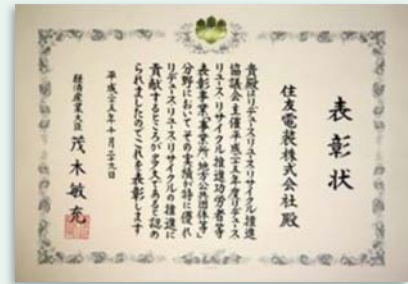 表彰状
住友電装株式会社殿
貴殿はリデュース・リユース・リサイクル推進
協議会主催平成二十五年度リデュース・
リユース・リサイクル推進功労者等
表彰事業「事業所・地方公共団体等」
分野においてその実績が特に優れ
リデュース・リユース・リサイクルの推進に
貢献するところが多大であると認め
られましたのでこれを表彰します
平成二十五年十月二十九日
経済産業大臣 茂木敏充